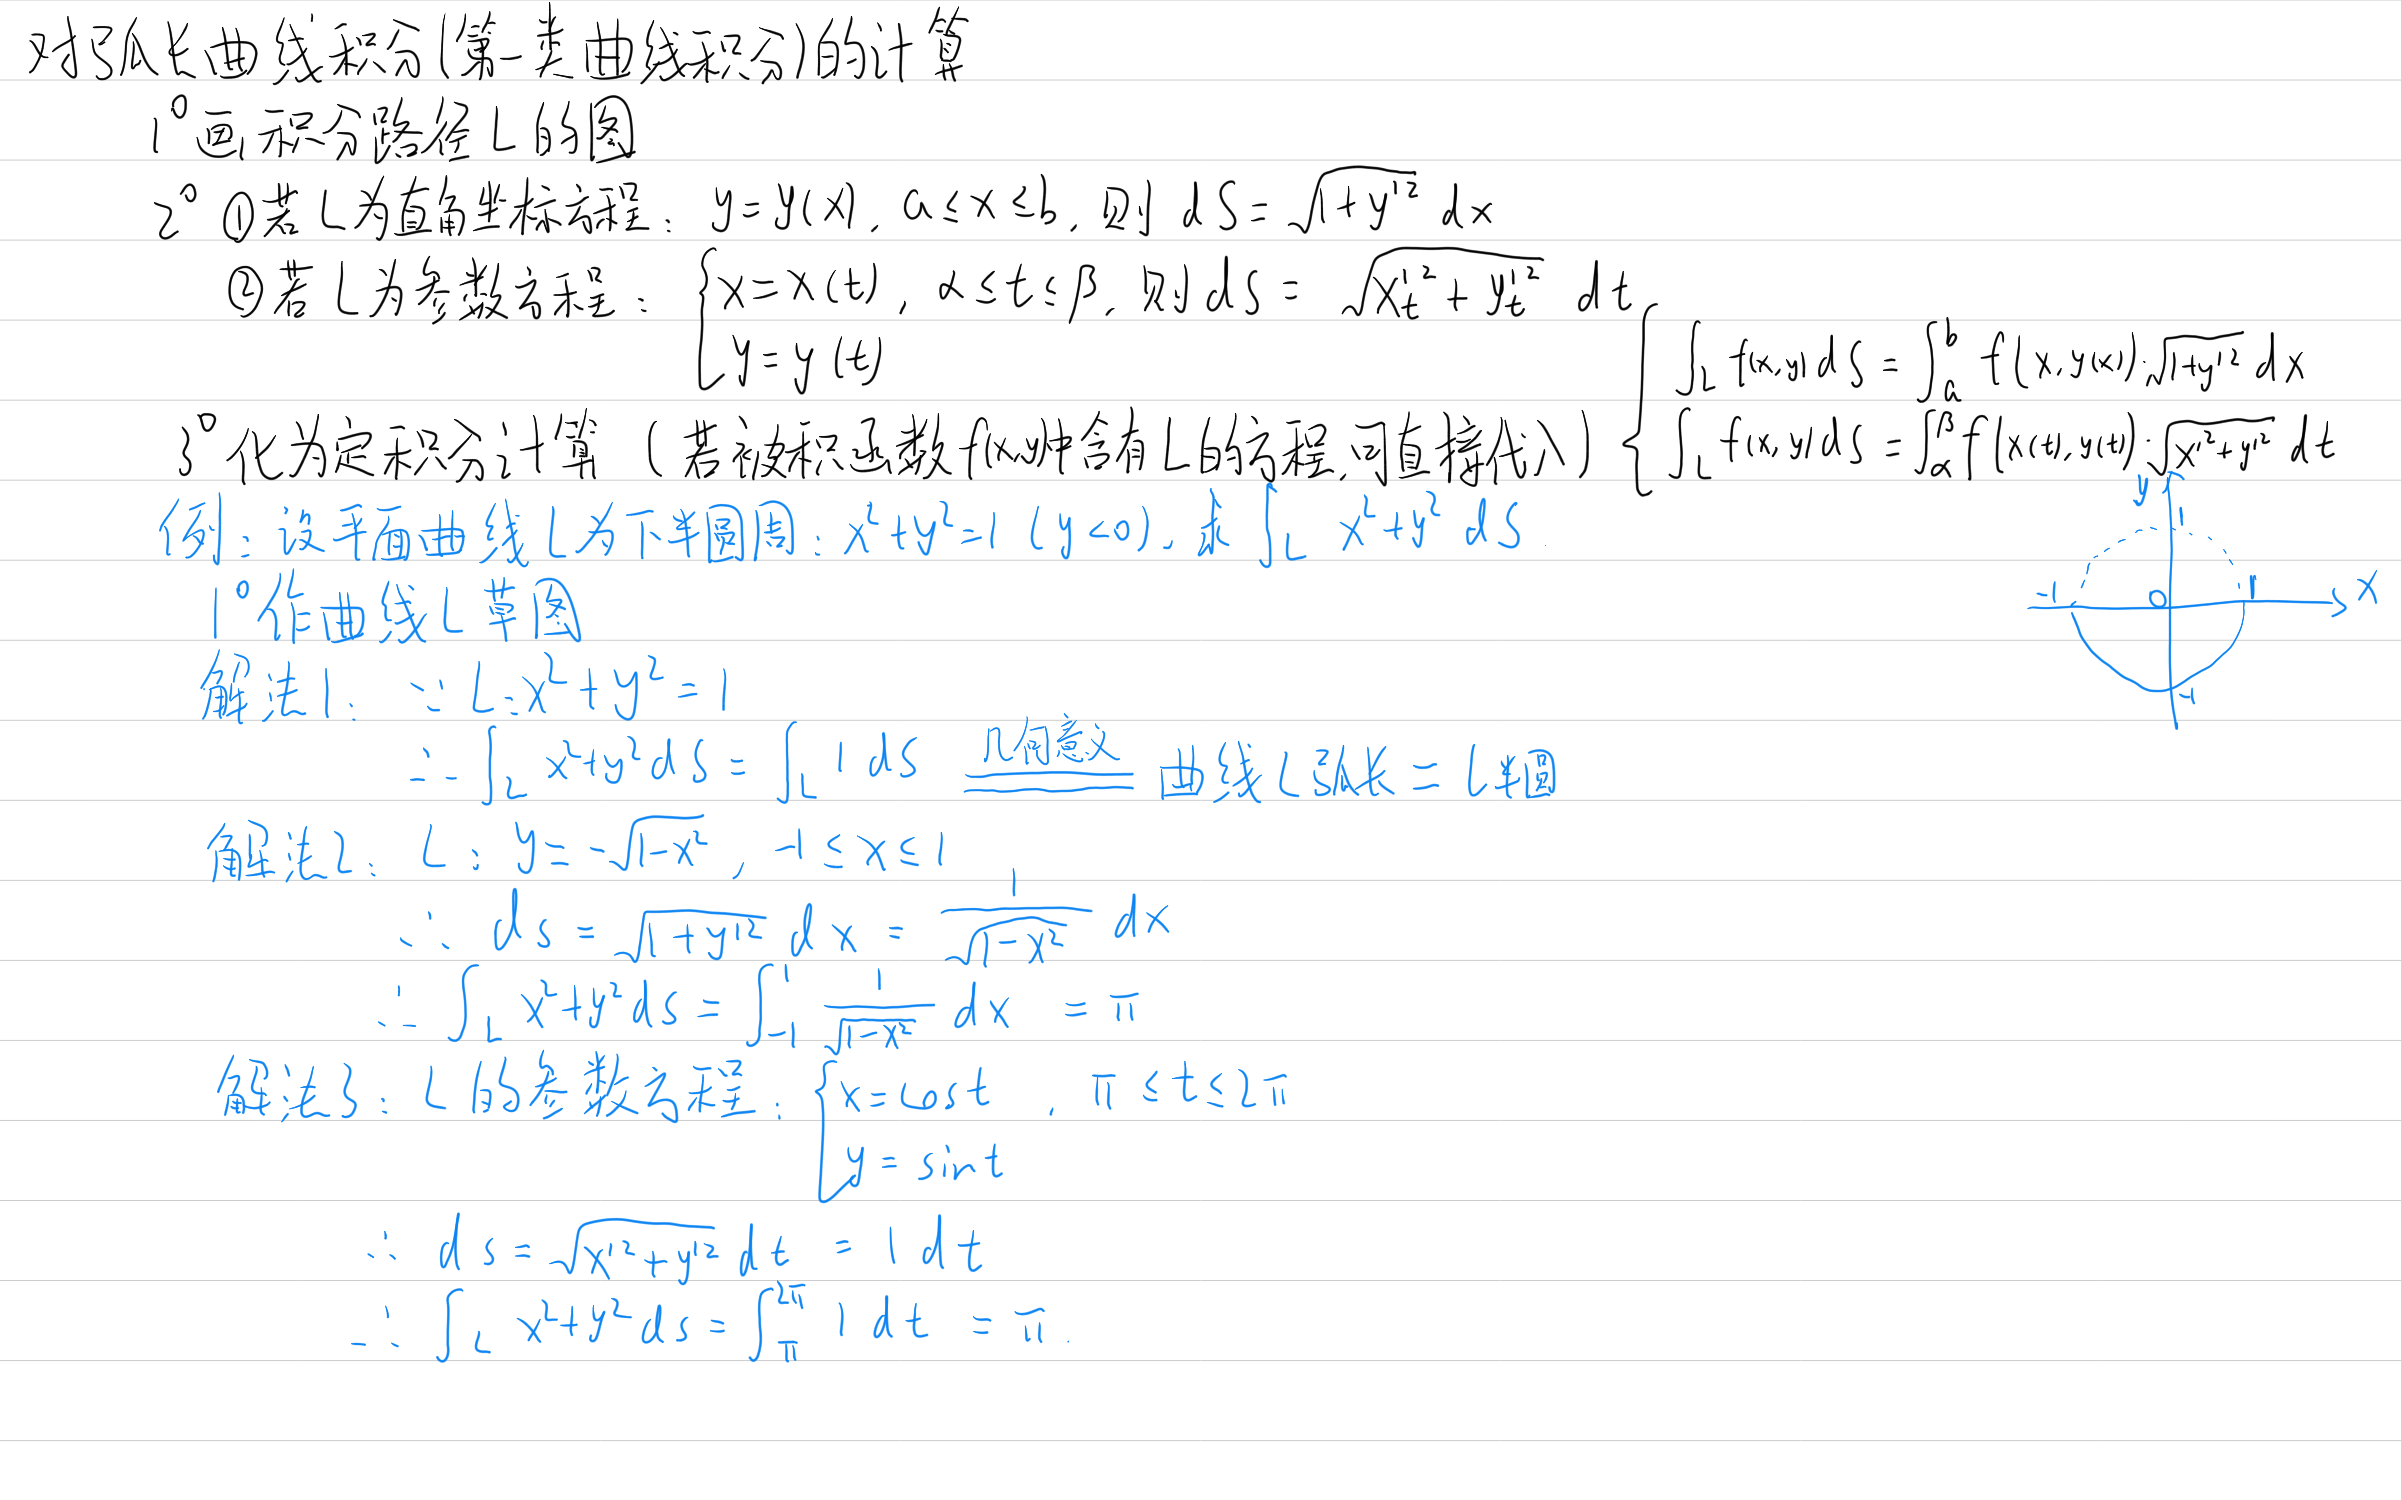 对弧长曲线积分(第一类曲线积分)的计算
1° 画积分路径L的图
2° ①若L为直角坐标方程: y=y(x), a≤x≤b, 则 dS=√(1+y'²) dx
②若L为参数方程: {x=x(t), α≤t≤β, 则 dS=√(x'ₜ²+y'ₜ²) dt
y=y(t)
3° 化为定积分计算 (若被积函数f(x,y)中含有L的方程,可直接代入)
{∫_L f(x,y)dS=∫_a^b f(x,y(x))·√(1+y'²) dx
∫_L f(x,y)dS=∫_α^β f(x(t),y(t))·√(x'²+y'²) dt
例: 设平面曲线L为下半圆周: x²+y²=1 (y<0), 求∫_L x²+y² dS.
y
1
-1 O 1 x
-1
1° 作曲线L草图
解法1: ∵ L:x²+y²=1
∴ ∫_L x²+y²dS=∫_L 1dS 几何意义 曲线L弧长=L半圆
解法2: L: y=-√(1-x²), -1≤x≤1
∴ ds=√(1+y'²) dx=1/√(1-x²) dx
∴ ∫_L x²+y²ds=∫_{-1}^1 1/√(1-x²) dx =π
解法3: L的参数方程: {x=cost , π≤t≤2π
y=sint
∴ ds=√(x'²+y'²) dt =1dt
∴ ∫_L x²+y²ds=∫_π^{2π} 1dt =π.